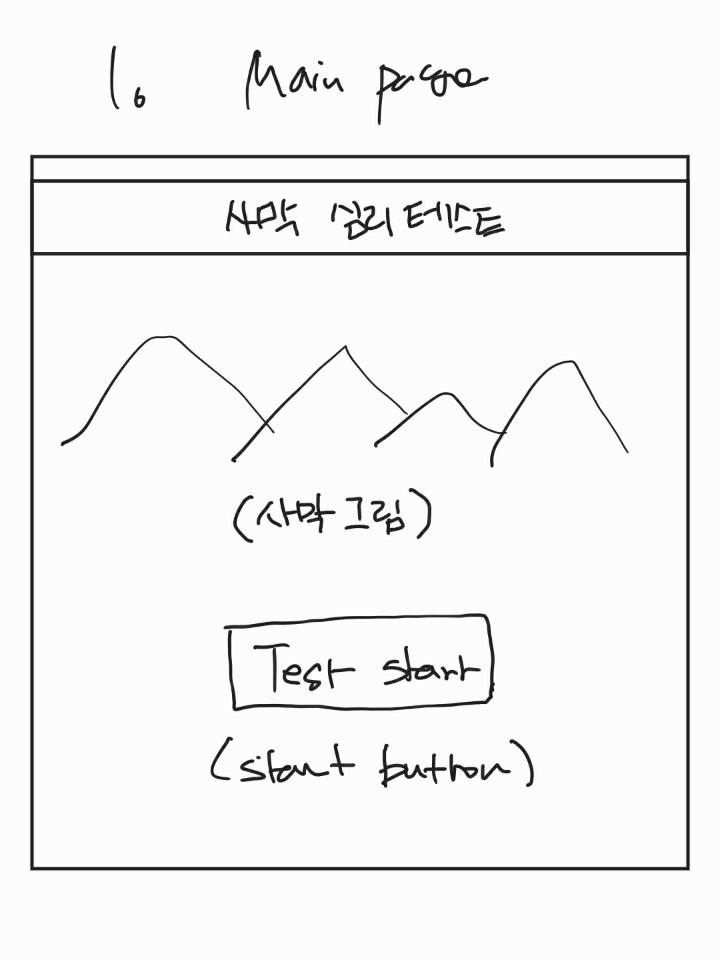 1. Main page
사막 심리테스트
(사막그림)
Test start
(start button)